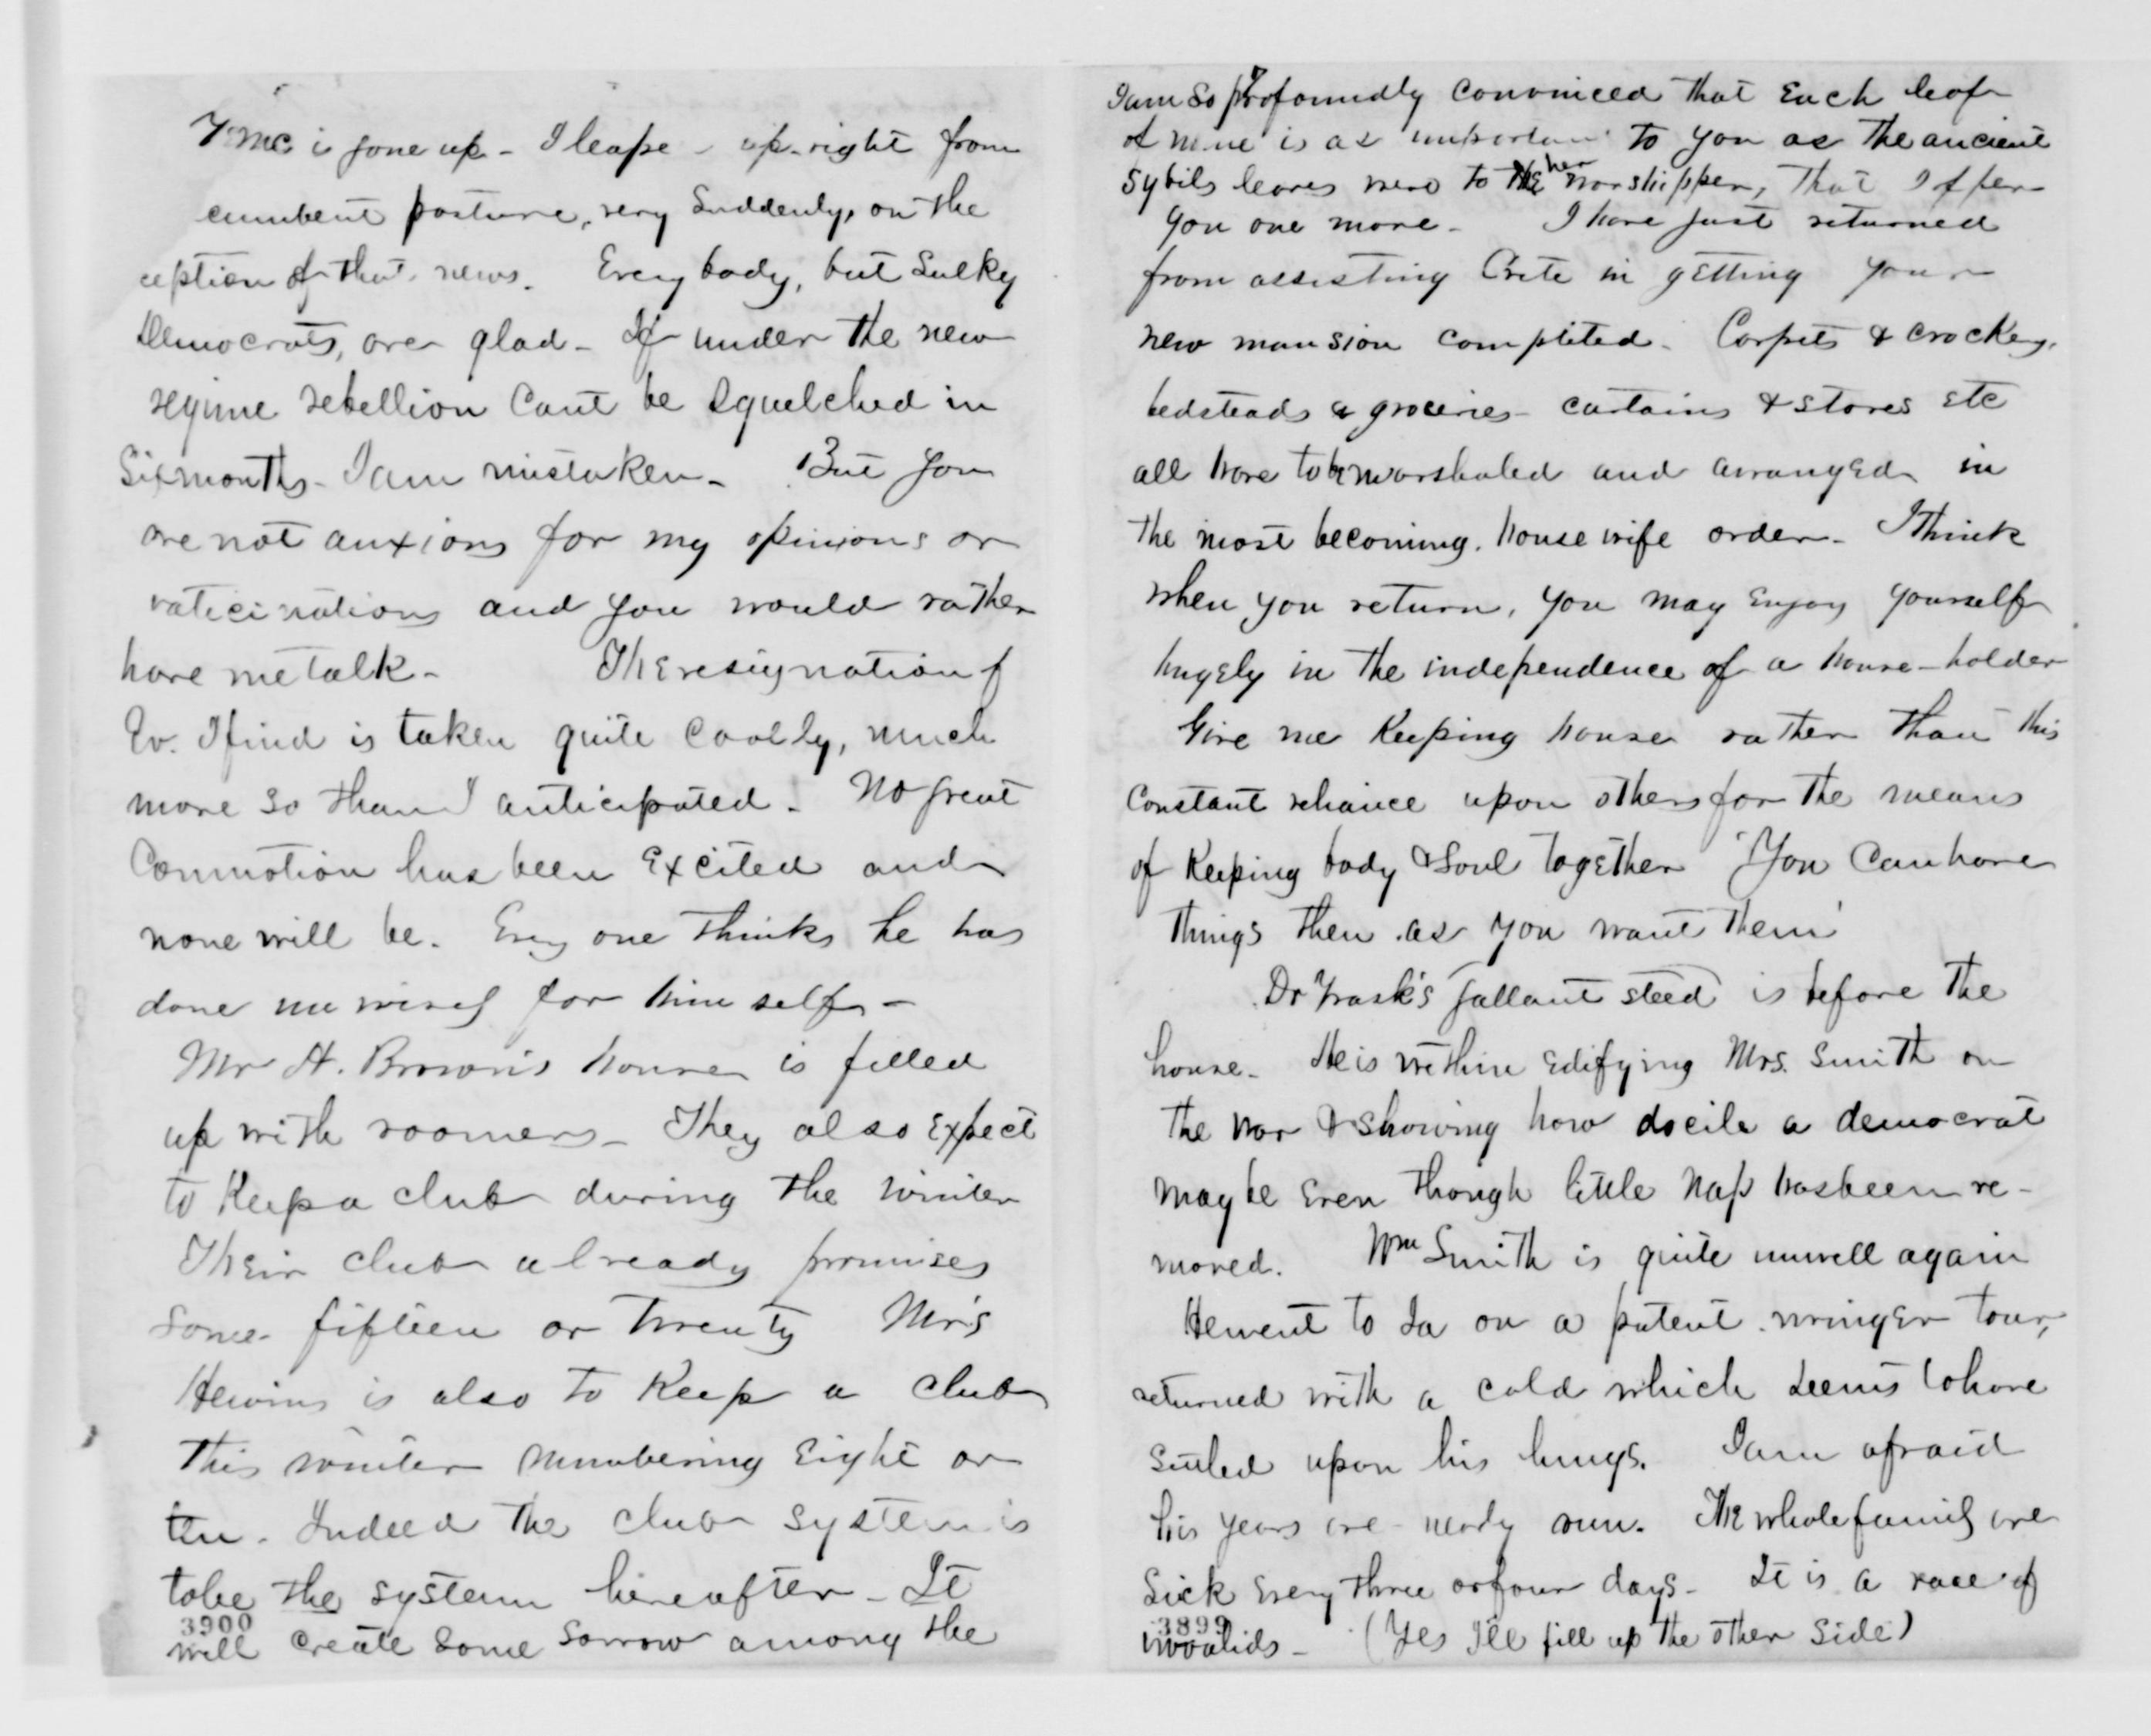 Mc is gone up - I leape - up-right from
cumbent posture, very suddenly, on the
ception of that news. Every body, but Sulky
Democrats, are glad - If under the new
regime rebellion Cant be Squelched in
Six months - I am mistaken - But you
are not anxious for my opinions or
vaticinations and you would rather
have me talk - The resignation of
Ev. I find is taken quite Coolly, much
more so than I anticipated. No great
Commotion has been Excited and
none will be. Every one thinks he has
done unwisely for him self -
Mr H. Brown's house is filled
up with roomers - They also Expect
to Keep a club during the winter
Their club already promises
some fifteen or twenty Mrs
is also to Keep a club
this winter numbering Eight or
ten. Indeed the club system is
to be the system hereafter - It
3900
will create some sorrow among the
I am So profoundly convinced that Each leaf
of mine is as important to you as the ancient
Sybils leaves were to her worshipper, that I offer
you one more - I have just returned
from assisting Crete in getting your
new mansion completed. Carpets & crockery,
bedsteads & groceries - curtains & stoves etc
all have to be marshaled and arranged in
the most becoming, house wife order - I think
when you return, you may Enjoy yourself
hugely in the independence of a house-holder
Give me Keeping house rather than this
Constant reliance upon others for the means
of Keeping body & Soul together You Can have
things then as you want them
Dr Trask's gallant steed is before the
house - He is within Edifying Mrs. Smith on
the War & Showing how docile a democrat
may be Even though little Nap has been re-
moved. Wm Smith is quite unwell again
He went to Ia on a patent wringer tour,
returned with a cold which seems to have
settled upon his lungs. I am afraid
his years are nearly run. The whole family are
Sick Every three or four days - It is a race of
3899
invalids - (Yes I'll fill up the other Side)